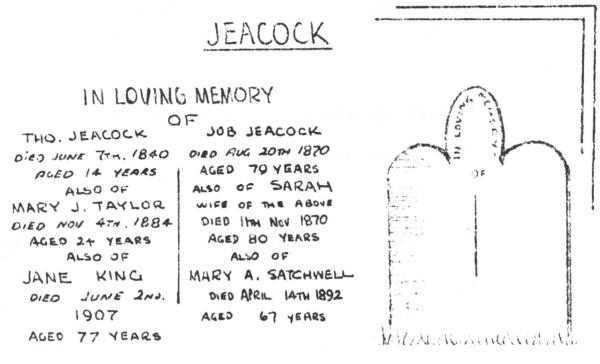 JEACOCK
IN LOVING MEMORY
OF
THO. JEACOCK
DIED JUNE 7TH. 1840
AGED 14 YEARS
ALSO OF
MARY J. TAYLOR
DIED NOV 4TH. 1884
AGED 24 YEARS
ALSO OF
JANE KING
DIED JUNE 2ND.
1907
AGED 77 YEARS
JOB JEACOCK
DIED AUG 20TH 1870
AGED 79 YEARS
ALSO OF SARAH
WIFE OF THE ABOVE
DIED 11TH NOV 1870
AGED 80 YEARS
ALSO OF
MARY A. SATCHWELL
DIED APRIL 14TH 1892
AGED 67 YEARS
IN LOVING MEMORY
OF